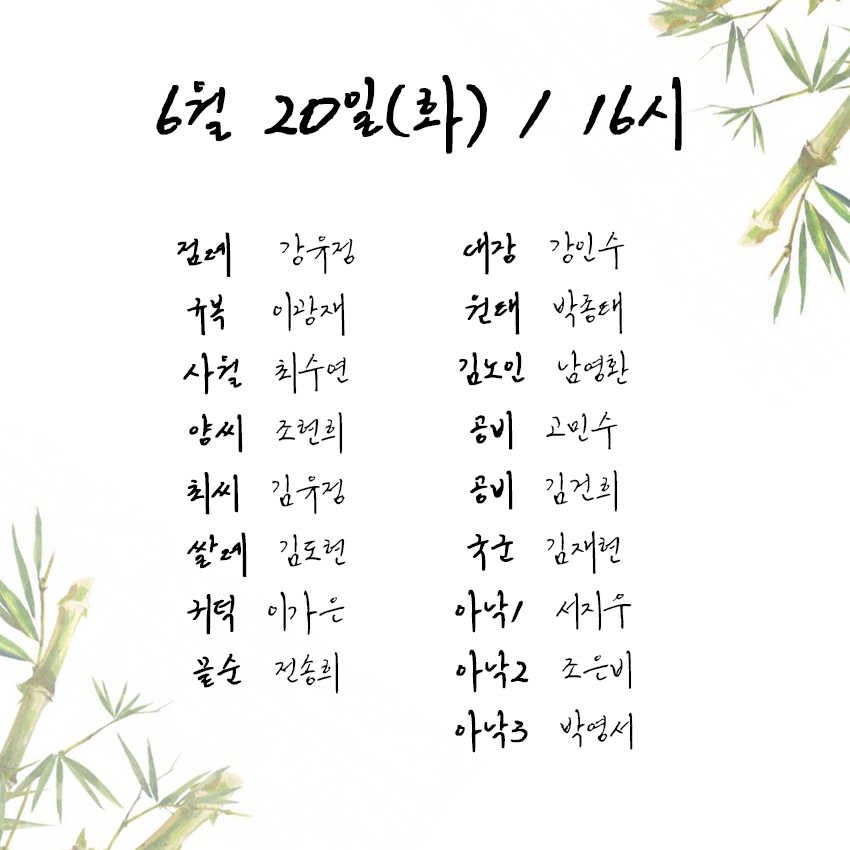 6월 20일(화) / 16시
점례 강유정
귀복 이광재
사월 최수연
양씨 조현희
최씨 김유정
쌀례 김도현
귀덕 이가은
끝순 전송희
대장 강인수
원태 박종태
김노인 남영환
공비 고민수
공비 김건희
국군 김재현
아낙1 서지우
아낙2 조은비
아낙3 박영서